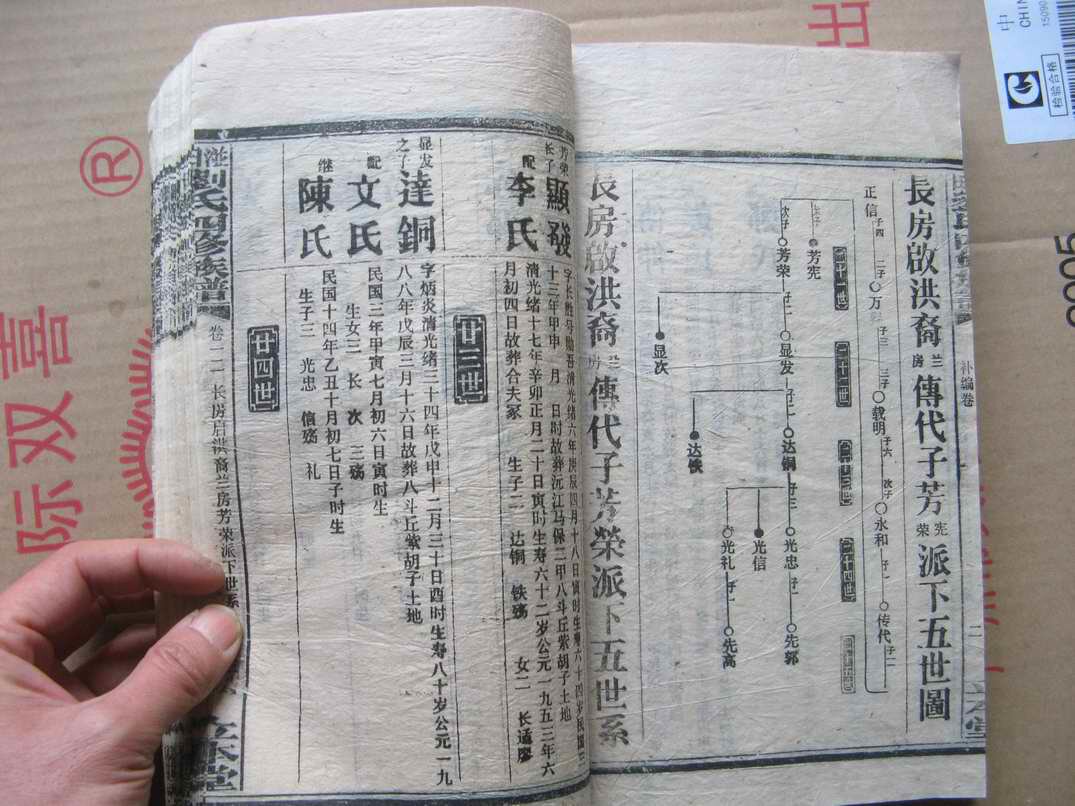 長房啟洪裔兰房傳代子芳宪荣派下五世圖
补编卷
正信 子四
二子 万
子三
三子 载明 子六
次子 永和 子一
传代 子二
二十一世
二十二世
二十三世
二十四世
芳宪
次子 芳荣 子二
显发 子二
达铜 子三
光忠 子一
先郭
显次
达铁
光信
光礼 子一
先高
長房啟洪裔兰房傳代子芳榮派下五世系
芳荣长子
顯發
十三年甲申 月 日时故葬沅江马保三甲八斗丘紫胡子土地
配李氏
清光绪十七年辛卯正月二十日寅时生寿六十二岁公元一九五三年六
月初四日故葬合夫冢 生子二 达铜 铁殇 女二 长适廖
廿三世
显发之子
達銅
字炳炎清光绪三十四年戊申十二月三十日酉时生寿八十岁公元一九
八八年戊辰三月十六日故葬八斗丘紫胡子土地
配文氏
民国三年甲寅七月初六日寅时生
生女三 长 次 三殇
继陳氏
民国十四年乙丑十月初七日子时生
生子三 光忠 信殇 礼
廿四世
劉氏四修族譜
卷二二 长房启洪裔兰房芳荣派下世系
立本堂
际双喜
®
出
中
CHIN
15090
检验合格